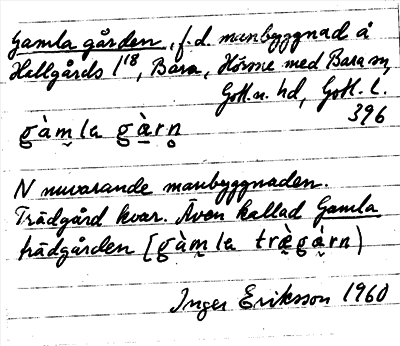 Gamla gården, f.d. manbyggnad å
Hallgårds 1¹⁸, Bara, Hörsne med Bara sn,
Gotl. n. hd, Gotl. l.
396
gàm̬la gà̱rn̥
N nuvarande manbyggnaden.
Trädgård kvar. Även kallad Gamla
trädgården [gàm̬la træ̬̀gá̬rn)
Inger Eriksson 1960